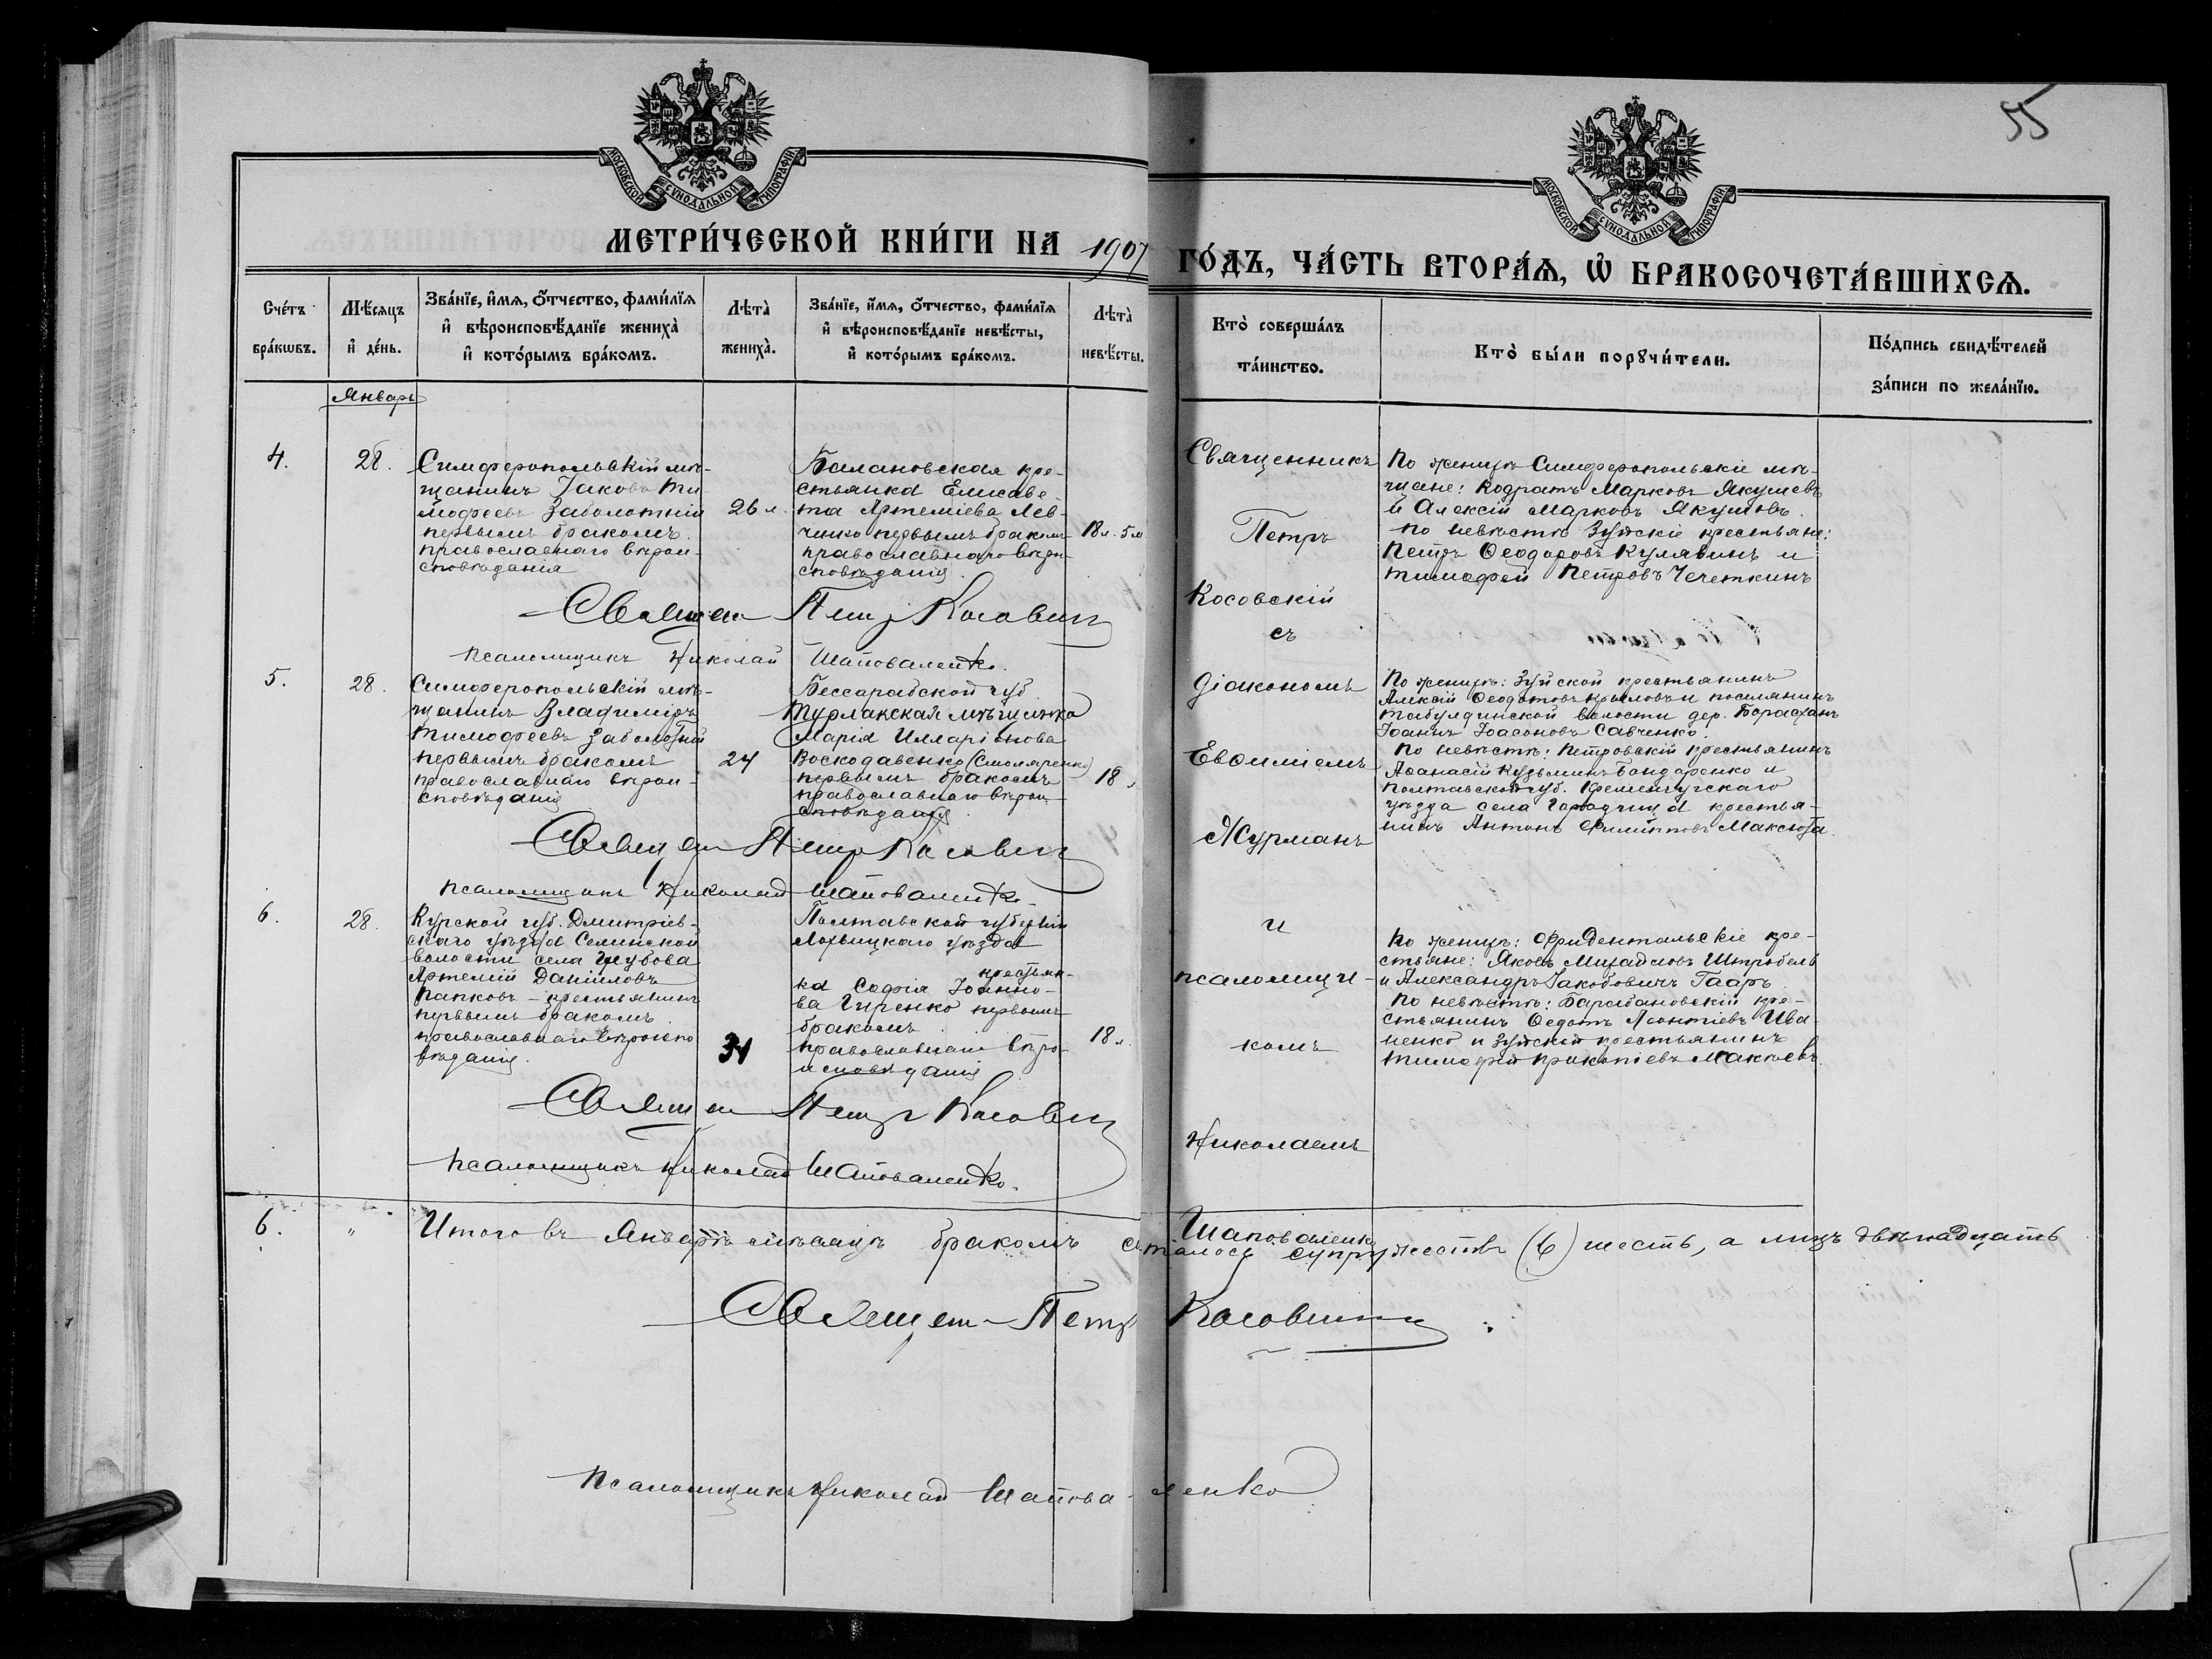 55
МОСКОВСКОЙ СѴНОДАЛЬНОЙ ТИПОГРАФІИ
МОСКОВСКОЙ СѴНОДАЛЬНОЙ ТИПОГРАФІИ
МЕТРИ́ЧЕСКОЙ КНИ́ГИ НА 1907 ГО́ДЪ, ЧА́СТЬ ВТОРА́Ѧ, Ѡ҆ БРАКОСОЧЕТА́ВШИХСѦ.
Сче́тъ
бра́кѡвъ.
Мѣ́сѧцъ
и҆ де́нь.
Зва́нїе, и҆́мѧ, ѻ҆́тчество, фами́лїѧ
и҆ вѣроисповѣ́данїе жениха̀
и҆ кото́рымъ бра́комъ.
Лѣта̀
жениха̀.
Зва́нїе, и҆́мѧ, ѻ҆́тчество, фами́лїѧ
и҆ вѣроисповѣ́данїе невѣ́сты,
и҆ кото́рымъ бра́комъ.
Лѣта̀
невѣ́сты.
Кто̀ соверша́лъ
та́инство.
Кто̀ бы́ли порꙋчи́тели.
По́дпись свидѣ́телей
за́писи по жела́нїю.
Январь
4.
28.
Симферопольскій мѣ-
щанинъ Іаковъ Ти
мофеевъ Заболотній
первымъ бракомъ.
православнаго вѣрои-
сповѣданія
26 л.
Балановская кре-
стьянка Елисаве-
та Артеміева Лев-
ченко первымъ бракомъ
православнаго вѣрои-
сповѣданія.
18 л. 5 м
Священникъ
Петръ
Косовскій
съ
діакономъ
Евѳиміемъ
Журманъ
и
псаломщи-
комъ
Николаемъ
Шаповаленко
По женихѣ Симферопольскіе мѣ-
щане: Кодратъ Марковъ Якушевъ
и Алексій Марковъ Якушовъ.
По невѣстѣ Зуйскіе крестьяне:
Петръ Ѳеодоровъ Кулявинъ и
Тимофей Петровъ Чечеткинъ
Священ Петръ Косовскій
псаломщикъ Николай Шаповаленко.
5.
28.
Симферопольскій мѣ-
щанинъ Владиміръ
Тимофеевъ Заболотній
первымъ бракомъ
православнаго вѣрои-
сповѣданія
24
Бессарабской губ.
Турлакская мѣщанка
Марія Илларіонова
Воскодавенко (Смоляренко)
первымъ бракомъ
православнаго вѣрои-
сповѣданія.
18 л
По женихѣ: Зуйской крестьянинъ
Алексій Ѳеодотовъ Крыловъ и поселянинъ
Табулдинской волости дер. Борагханъ
Іоаннъ Іоасоновъ Савченко.
По невѣстѣ: Петровскій крестьянинъ
Аѳанасій Кузьминъ Бондаренко и
Полтавской губ. Кременчугскаго
уѣзда села крестья-
нинъ Антонъ Филипповъ Максюта.
Священ Петръ Косовскій
псаломщикъ Николай Шаповаленко.
6.
28.
Курской губ. Дмитріев-
скаго уѣзда Селинской
волости села
Артемій Даніиловъ
Папковъ - крестьянинъ
первымъ бракомъ.
православнаго вѣроиспо
вѣданія.
31
Полтавской губерніи
Лохвицкаго уѣзда
крестьян-
ка Софія Іоанно-
ва Гиренко первымъ
бракомъ.
православнаго вѣро-
исповѣданія
18 л.
По женихѣ: Фриденталъскіе кре-
стьяне: Яковъ Михайловъ Штрубель
и Александръ Іакобовичъ Гааръ.
По невѣстѣ: Барабановскій кре-
стьянинъ Ѳедотъ Леонтіевъ Ива-
ненко и Зуйскій крестьянинъ
Тимофей Прокопіевъ Макѣевъ.
Священ Петръ Косовскій
псаломщикъ Николай Шаповаленко.
6. " Итого въ Январѣ мѣсяцѣ бракомъ сталось супружествъ (6) шесть, а лицъ двѣнадцать
Священ Петръ Косовскій
Псаломщикъ Николай Шаповаленко